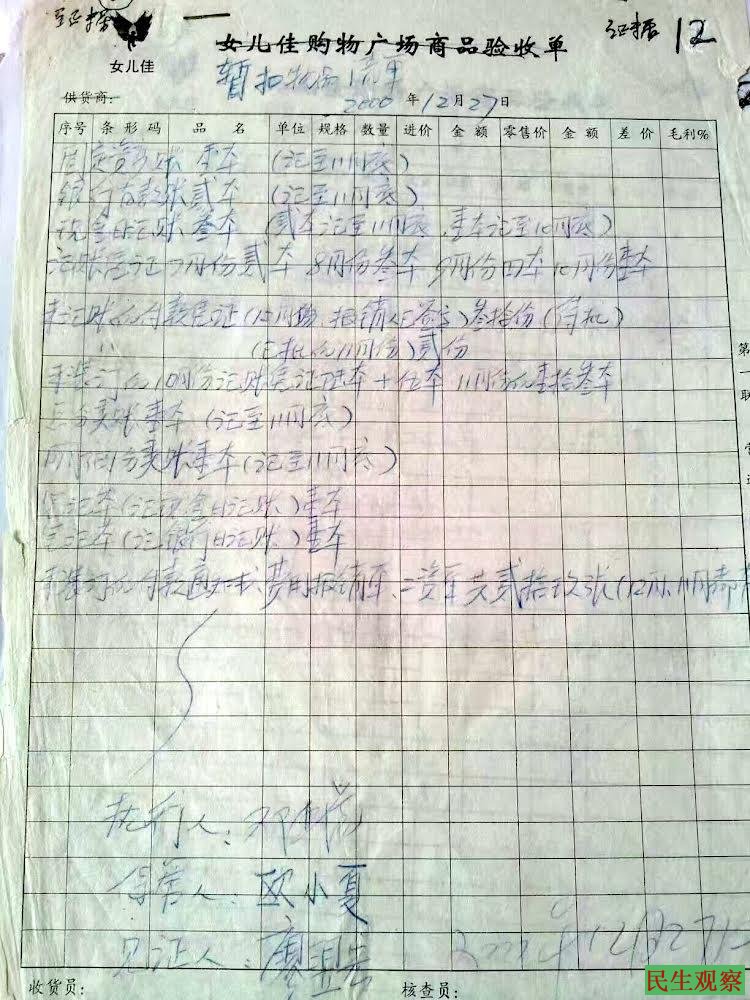 证据
女儿佳
女儿佳购物广场商品验收单
证据 12
暂扣物品清单
供货商：
2000年12月27日
序号 条形码 品名 单位 规格 数量 进价 金额 零售价 金额 差价 毛利%
固定资产账 壹本 (记至11月底)
银行存款账贰本 (记至11月底)
现金日记账 叁本 (贰本记至11月底 壹本记至10月底)
记账凭证7月份贰本 8月份叁本 9月份四本 10月份壹本
未记账的付款凭证(12月份 报销人已签字)叁拾份(待批)
〃 (已批的11月份)贰份
未装订的10月份记账凭证 本+ 本 11月份的壹拾叁本
总分类账壹本 (记至11月底)
明细分类账壹本(记至11月底)
本(记现金日记账)壹本
本(记银行日记账)壹本
未装订的付款通知书、费用报销单、工资单共贰拾玖张(12月、11月
执行人：邓
保管人：欧小夏
见证人：廖
2000年12月27日
收货员：
核查员：
第一联
民生观察